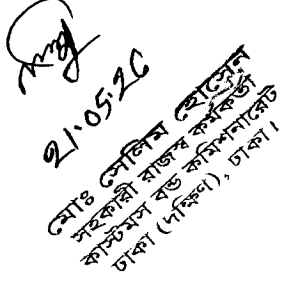 21.05.26
মোঃ সেলিম হোসেন
সহকারী রাজস্ব কর্মকর্তা
কাস্টমস বন্ড কমিশনারেট
ঢাকা (দক্ষিণ), ঢাকা।